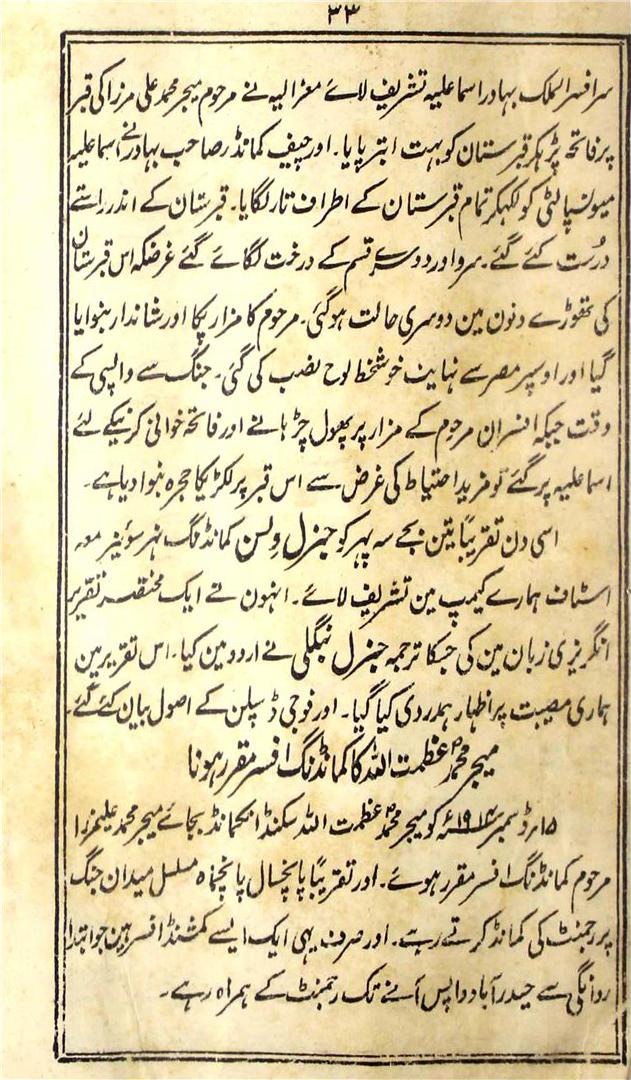 ۳۳
سر افسر الملک بہادر اسماعلیہ تشریف لاے معز الیہ نے مرحوم میجر محمد علی مرزا کی قبر
پر فاتحہ پڑہکر قبرستان کو بہت ابتر پایا۔ اور چیف کمانڈر صاحب بہادر نے اسماعلیہ
میونسپالٹی کو لکہکر تمام قبرستان کے اطراف تار لگایا۔ قبرستان کے اندر راستے
درُست کئے گئے۔ سرو اور دوسرے قسم کے درخت لگائے گئے غرضکہ اس قبرستان
کی تھوڑے دنون مین دوسری حالت ہوگئی۔ مرحوم کا مزار پکا اور شاندار بنوایا
گیا اور اوسپر مصر سے نہایت خوشخط لوح نصب کی گئی۔ جنگ سے واپسی کے
وقت جبکہ افسران مرحوم کے مزار پر پھول چڑہانے اور فاتحہ خوانی کرنیکے لئے
اسماعلیہ پر گئے تو مزید احتیاط کی غرض سے اس قبر پر لکڑیکا حجرہ بنوا دیا ہے۔
اسی دن تقریباً تین بجے سہ پہر کو جنرل ولسن کمانڈنگ نہر سوئیز معہ
اسٹاف ہمارے کیمپ مین تشریف لائے۔ انہون نے ایک مختصر تقریر
انگریزی زبان مین کی جسکا ترجمہ جنرل نے اردو مین کیا۔ اس تقریر مین
ہماری مصیبت پر اظہار ہمدردی کیا گیا۔ اور فوجی ڈسپلن کے اصول بیان کئے گئے۔
میجر محمدؐ عظمت اللہ کا کمانڈنگ افسر مقرر ہونا
۱۵ ڈسمبر ۱۹۱۴ء کو میجر محمدؐ عظمت اللہ سکنڈ انکمانڈ بجائے میجر محمد علیمرزا
مرحوم کمانڈنگ افسر مقرر ہوئے۔ اور تقریباً پانچسال پانچماہ مسلسل میدان جنگ
پر رجمنٹ کی کمانڈ کرتے رہے۔ اور صرف یہی ایک ایسے کمشنڈ افسر ہین جو ابتدا
روانگی سے حیدرآباد واپس آنے تک رجمنٹ کے ہمراہ رہے۔